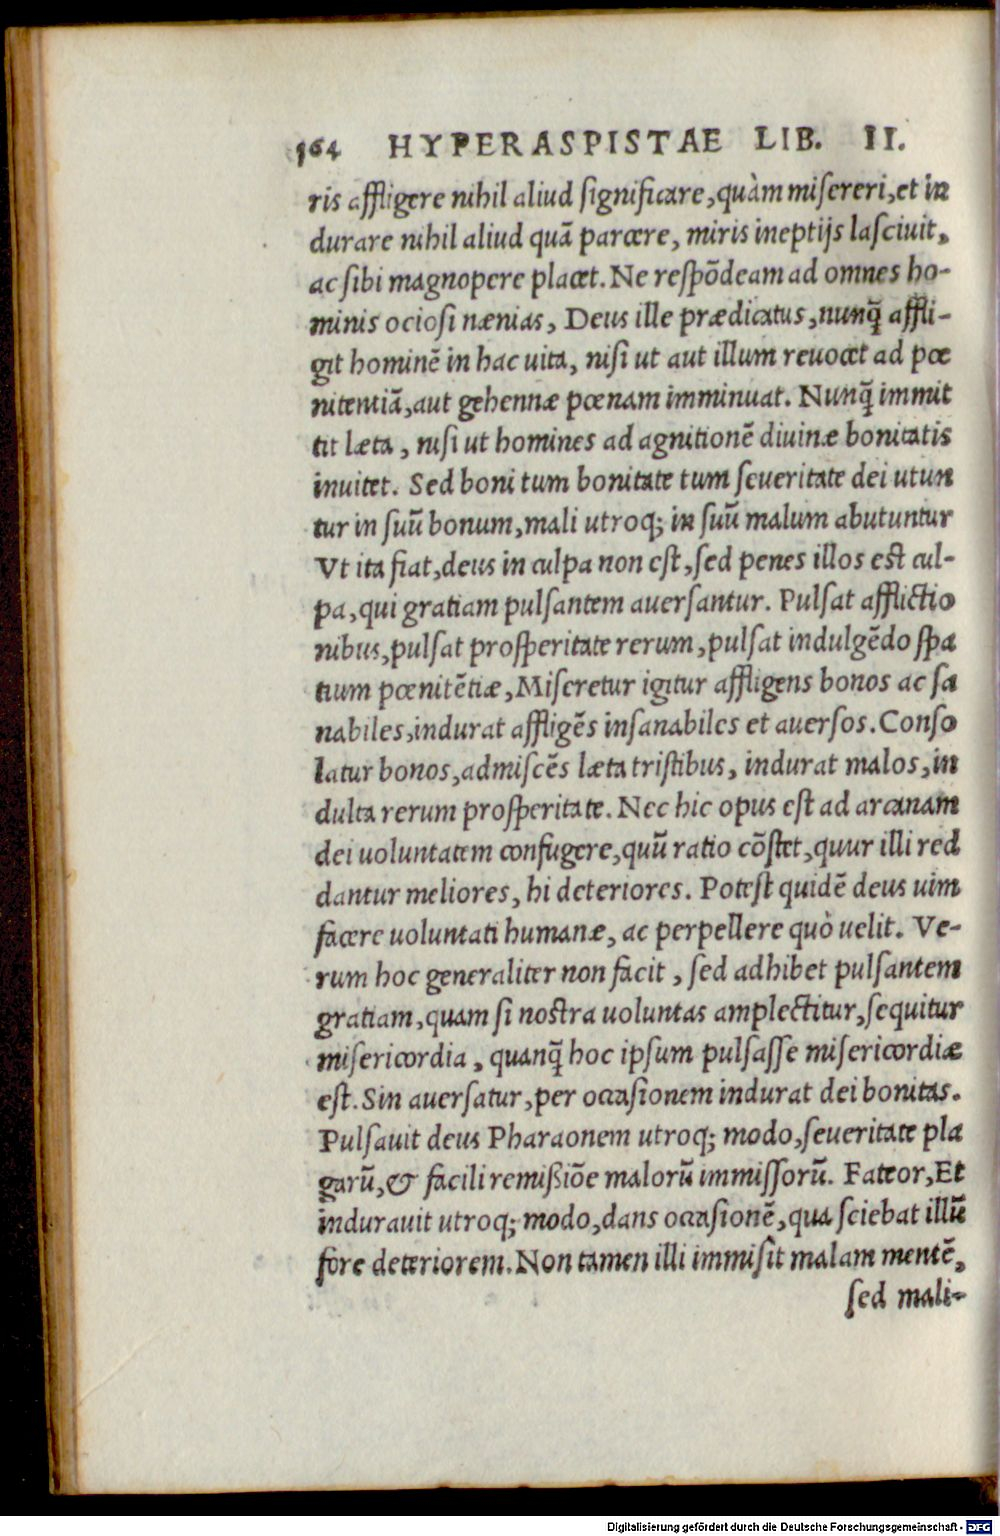 164 HYPERASPISTAE LIB. II.
ris affligere nihil aliud ſignificare, quàm miſereri, et in
durare nihil aliud quā parcere, miris ineptijs laſciuit,
ac ſibi magnopere placet. Ne reſpōdeam ad omnes ho-
minis ocioſi nænias, Deus ille prædicatus, nunq̄ affli-
git hominē in hac uita, niſi ut aut illum reuocet ad pœ
nitentiā, aut gehennæ pœnam imminuat. Nunq̄ immit
tit læta, niſi ut homines ad agnitionē diuinæ bonitatis
inuitet. Sed boni tum bonitate tum ſeueritate dei utun
tur in ſuū bonum, mali utroq; in ſuū malum abutuntur
Vt ita fiat, deus in culpa non eſt, ſed penes illos eſt cul-
pa, qui gratiam pulſantem auerſantur. Pulſat afflictio
nibus, pulſat proſperitate rerum, pulſat indulgēdo ſpa
tium pœnitētiæ, Miſeretur igitur affligens bonos ac ſa
nabiles, indurat affligēs inſanabiles et auerſos. Conſo
latur bonos, admiſcēs læta triſtibus, indurat malos, in
dulta rerum proſperitate. Nec hic opus eſt ad arcanam
dei uoluntatem confugere, quū ratio cōſtet, quur illi red
dantur meliores, hi deteriores. Poteſt quidē deus uim
facere uoluntati humanæ, ac perpellere quò uelit. Ve-
rum hoc generaliter non facit, ſed adhibet pulſantem
gratiam, quam ſi noſtra uoluntas amplectitur, ſequitur
miſericordia, quanq̄ hoc ipſum pulſaſſe miſericordiæ
eſt. Sin auerſatur, per occaſionem indurat dei bonitas.
Pulſauit deus Pharaonem utroq; modo, ſeueritate pla
garū, & facili remißiōe malorū immiſſorū. Fateor, Et
indurauit utroq; modo, dans occaſionē, qua ſciebat illū
fore deteriorem. Non tamen illi immiſit malam mentē,
ſed mali-
Digitalisierung gefördert durch die Deutsche Forschungsgemeinschaft - DFG